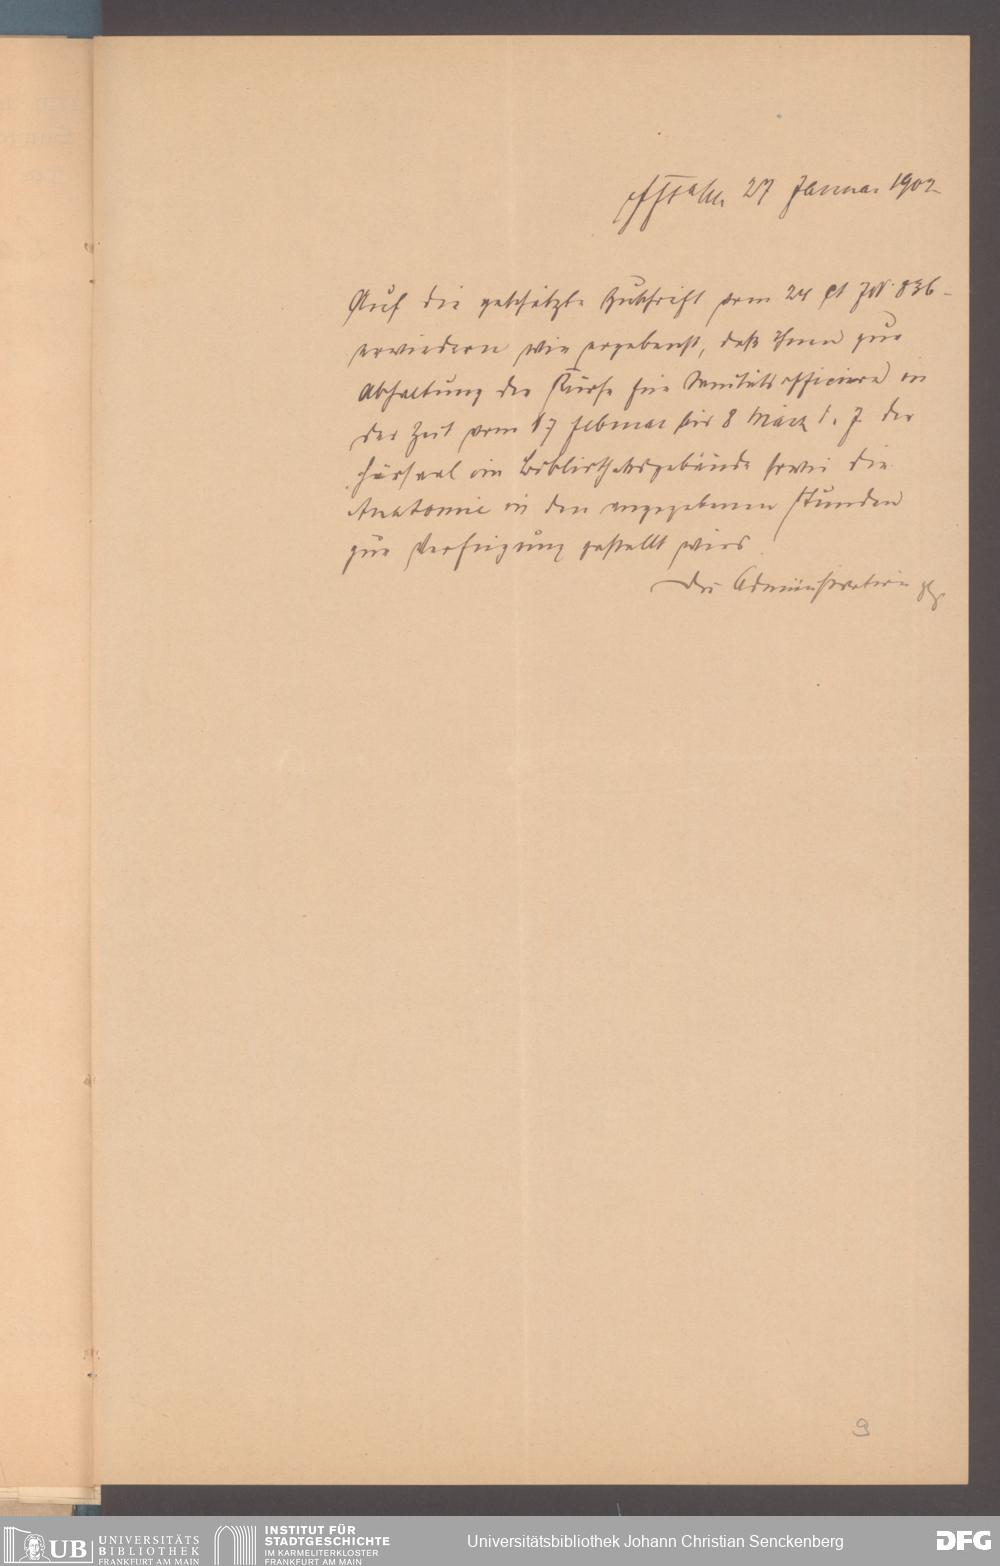 27 Januar 1902
Auf die geschätzte Zuschrift vom 24 ct JN. 836
erwiedern wir ergebenst, daß Ihnen zur
Abhaltung der Kurse für Sanitätsofficiere in
der Zeit vom 17 Februar bis 8 März d. J. der
Hörsaal im Bibliotheksgebäude sowie die
Anatomie in den angegebenen Stunden
zur Verfügung gestellt wird.
Die Administration
9
UB UNIVERSITÄTS
BIBLIOTHEK
FRANKFURT AM MAIN
INSTITUT FÜR
STADTGESCHICHTE
IM KARMELITERKLOSTER
FRANKFURT AM MAIN
Universitätsbibliothek Johann Christian Senckenberg
DFG